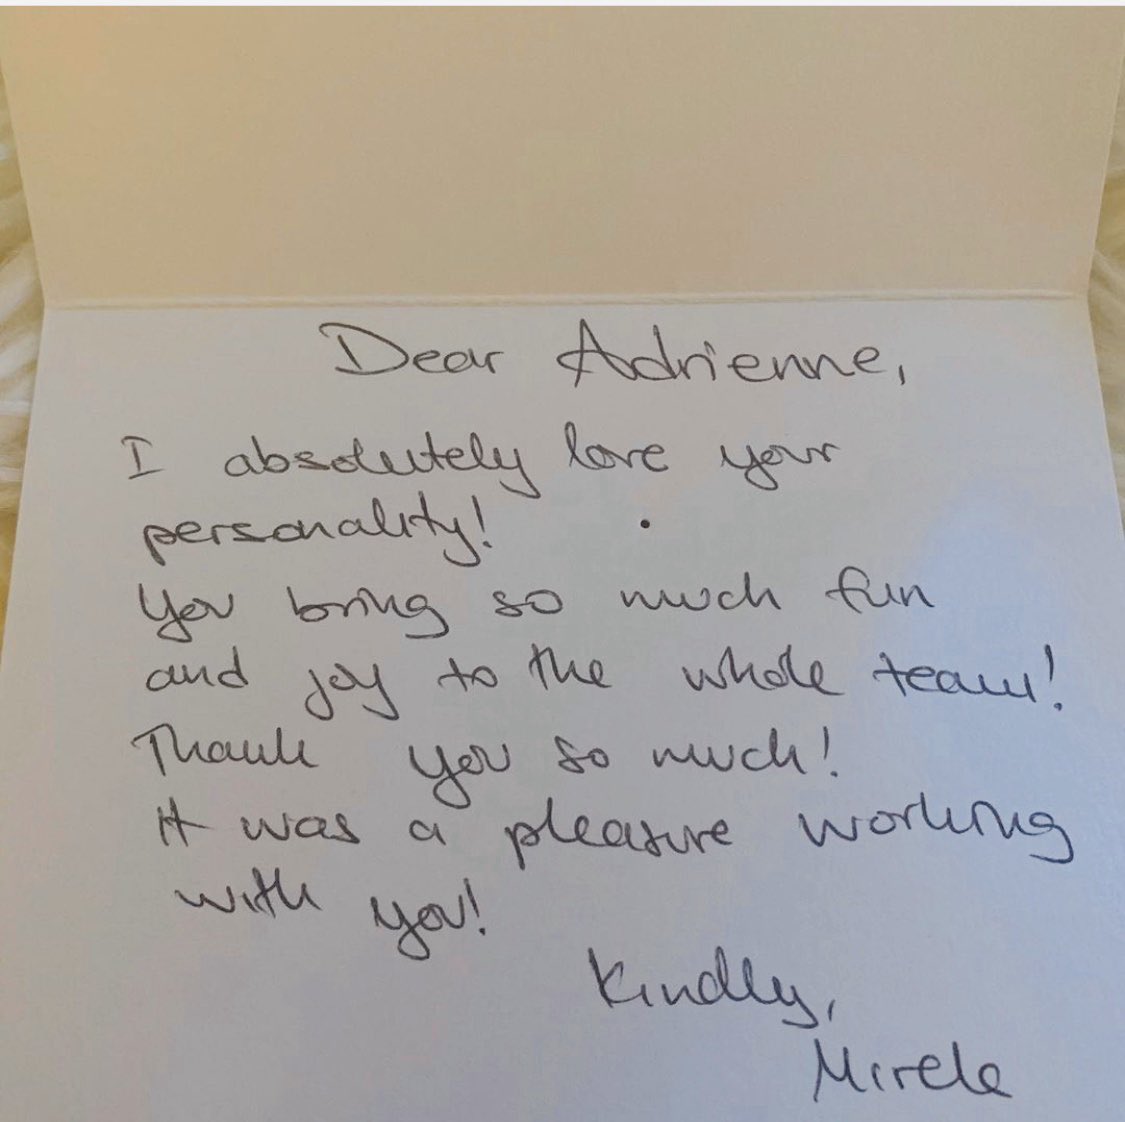 Dear Adrienne,
I absolutely love your
personality!
You bring so much fun
and joy to the whole team!
Thank you so much!
It was a pleasure working
with you!
Kindly,
Mirela